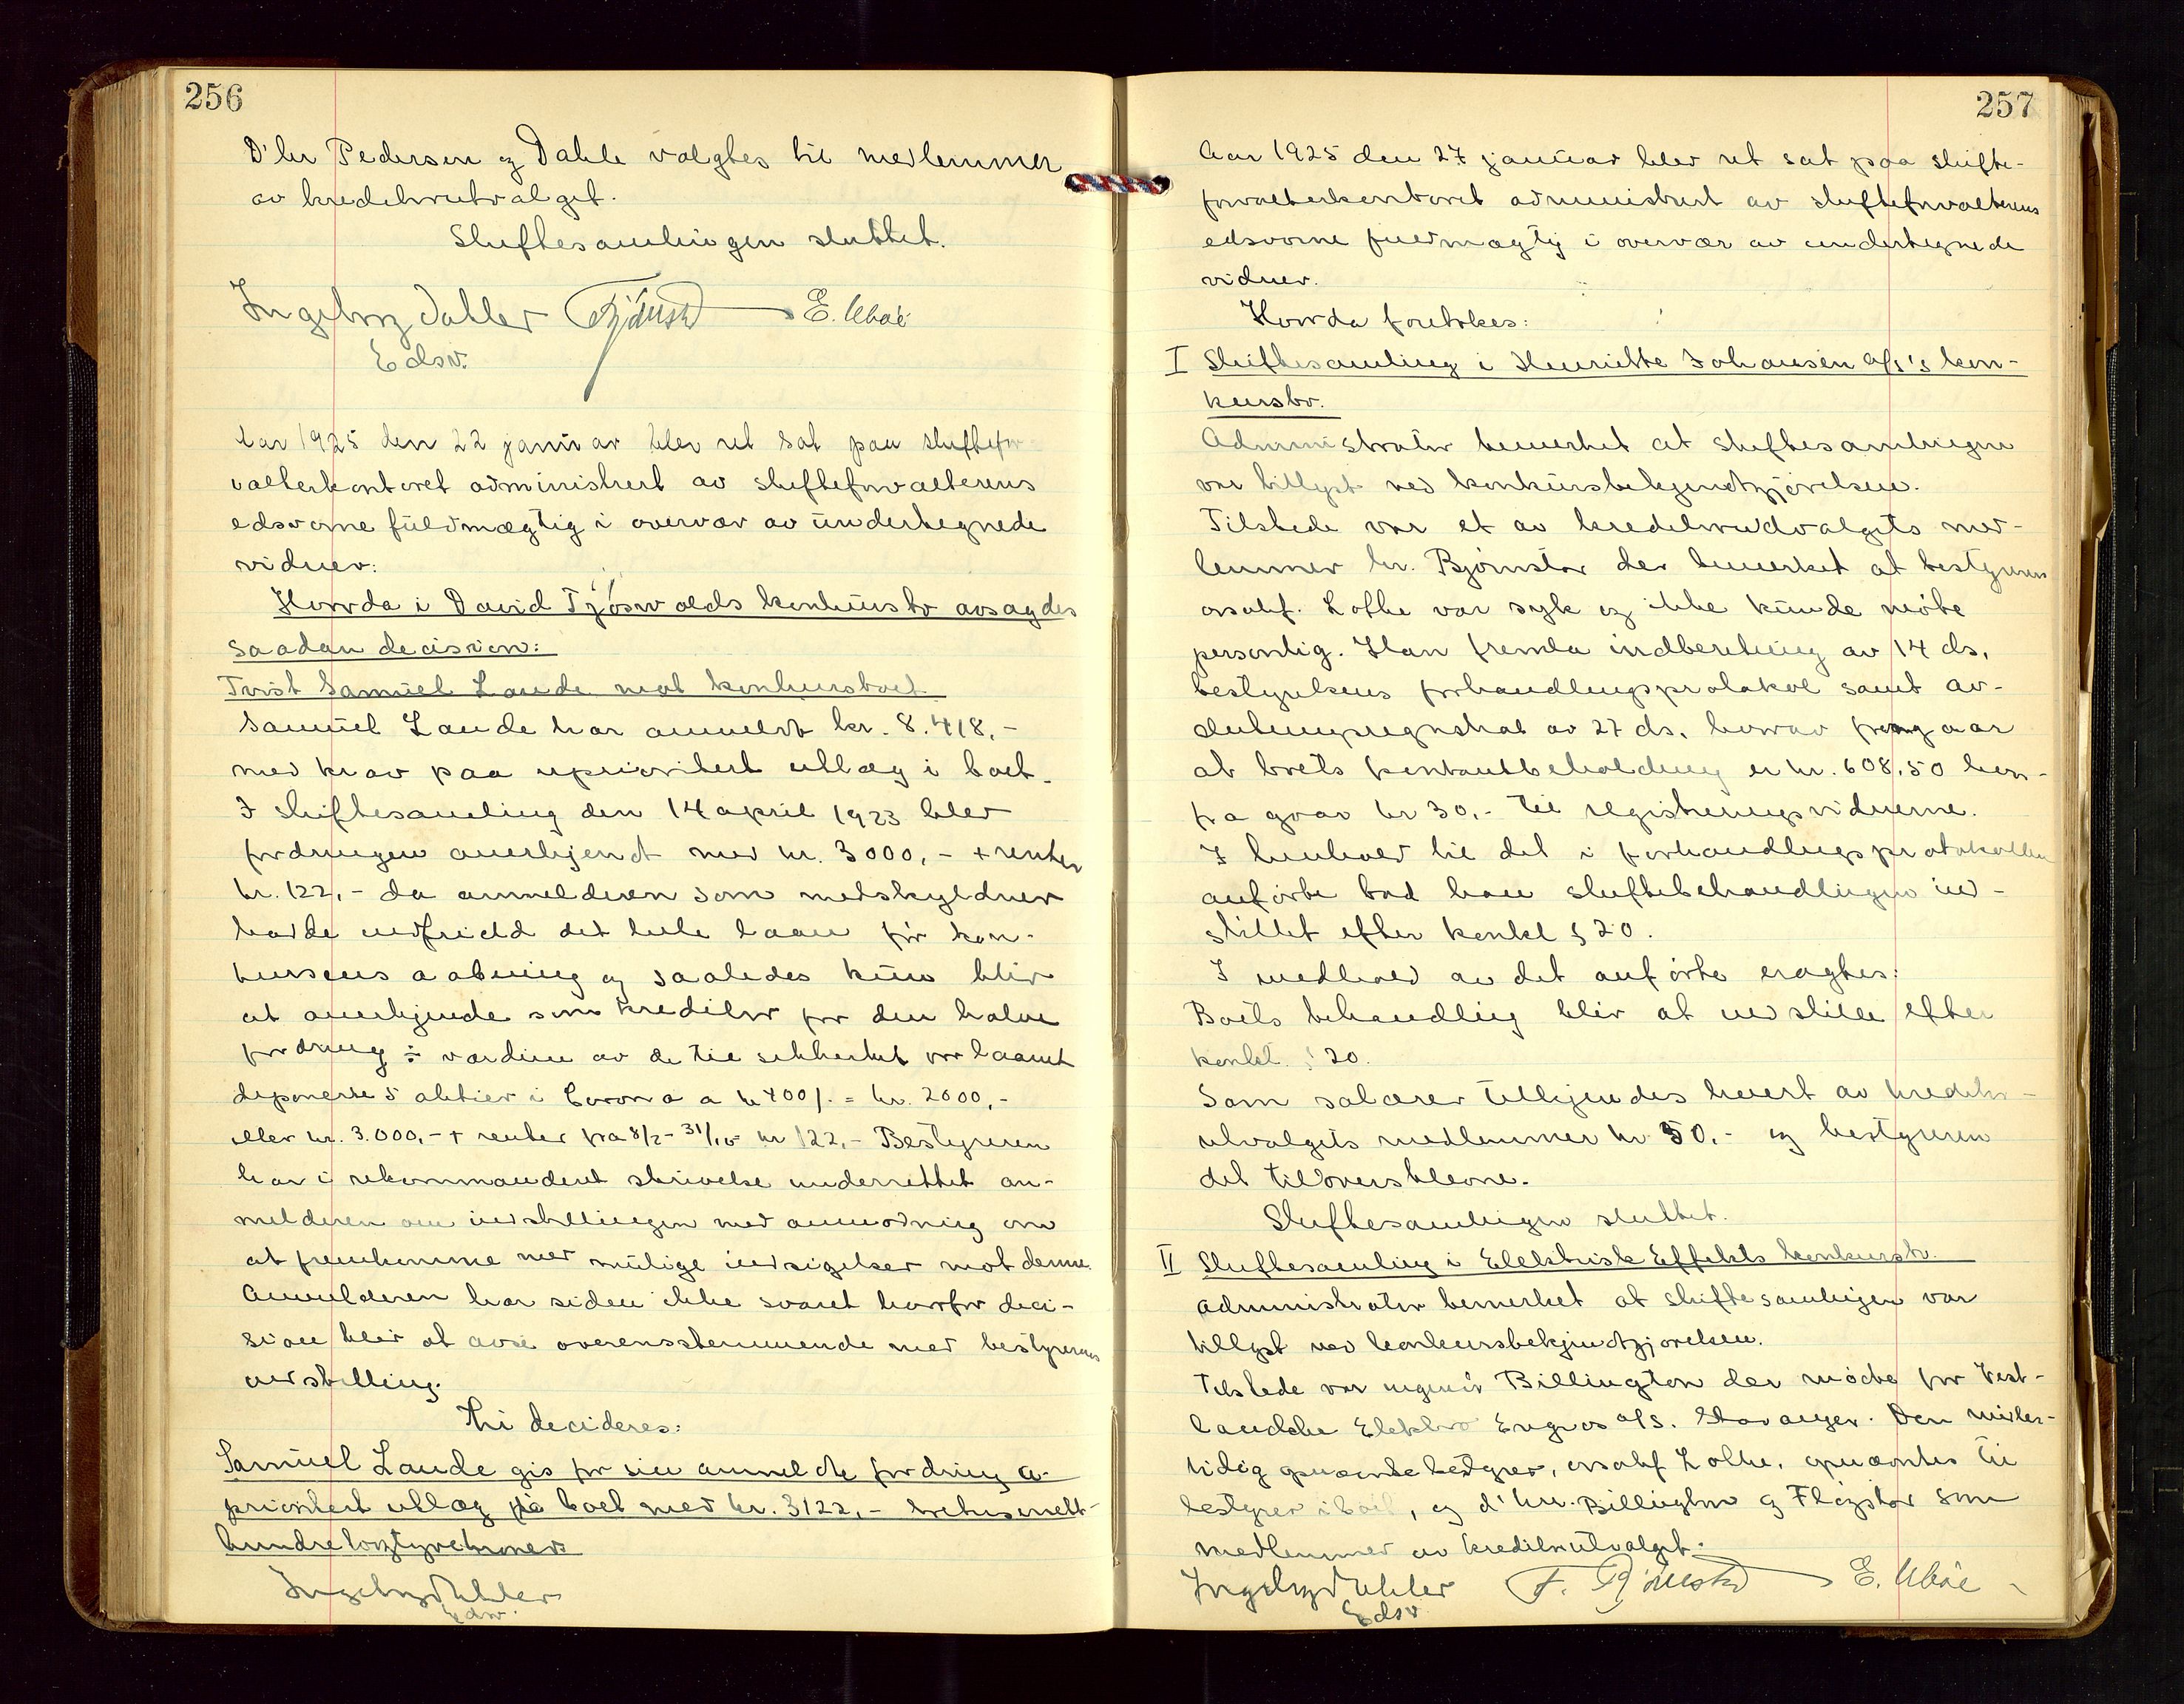 256
D'hr Pedersen og Dahle valgtes til medlemmer
av kreditorutvalget.
Skiftesamlingen sluttet.
Ingeborg Dahler E. Uboe
Edsv.
Aar 1925 den 22 januar blev ret sat paa skiftefor-
valterkontoret administrert av skifteforvalterens
edsvorne fuldmægtig i overvær av undertegnede
vidner:
Hvorda i David Tjøsvolds konkursbo avsagdes
saadan decision:
Tvist Samuel Lande mot konkursboet.
Samuel Lande har anmeldt kr. 8.418,-
med krav paa uprioritert utlæg i boet.
I skiftesamling den 14 april 1923 blev
fordringen anerkjendt med kr. 3000,- + renter
kr. 122,- da anmelderen som medskyldner
hadde indfridd det hele laan før kon-
kursens aabning og saaledes kun blir
at anerkjende som kreditor for den halve
fordring ÷ værdien av de til sikkerhet for laanet
deponerte 5 aktier i Corona a kr 400/- = kr. 2000,-
eller kr. 3.000,- + renter fra 8/2 - 31/10 kr 122,- Bestyreren
har i rekommandert skrivelse underrettet an-
melderen om indstillingen med anmodning om
at fremkomme med mulige indsigelser mot denne.
Anmelderen har siden ikke svaret hvorfor deci-
sion blir at avsi overensstemmende med bestyrerens
indstilling.
Thi decideres:
Samuel Lande gis for sin anmeldte fordring u-
prioritert utlæg i boet med kr. 3122,- tretusenett-
hundreogtyvetokroner
Ingeborg Dahler
Edsv.
257
Aar 1925 den 27 januar blev ret sat paa skifte-
forvalterkontoret administrert av skifteforvalterens
edsvorne fuldmægtig i overvær av undertegnede
vidner.
Hvorda foretokes:
I Skiftesamling i Henriette Johansen A/S's kon-
kursbo.
Administrator bemerket at skiftesamlingen
var tillyst ved konkursbekjendtgjørelsen.
Tilstede var et av kreditorutvalgets med-
lemmer hr. Bjørnstad der bemerket at bestyreren
orsakf. Lothe var syk og ikke kunde møte
personlig. Han fremla indberetning av 14 ds,
bestyrelsens forhandlingsprotokol samt av-
slutningsregnskab av 27 ds. hvorav fremgaar
at boets kontantbeholdning er kr. 608,50 hvor-
fra gaar kr 30,- til registreringsvidnerne.
I henhold til det i forhandlingsprotokollen
anførte bad han skiftebehandlingen ind-
stillet efter konkl § 20.
I medhold av det anførte eragtes:
Boets behandling blir at indstille efter
konkl. § 20.
Som salærer tilkjendes hvert av kreditor-
utvalgets medlemmer kr. 50,- og bestyreren
det tiloversblevne.
Skiftesamlingen sluttet.
II Skiftesamling i Elektrisk Effekts konkursbo.
Administrator bemerket at skiftesamlingen var
tillyst ved konkursbekjendtgjørelsen.
Tilstede var ingeniør Billington der møtte for Vest-
landske Elektro Engros A/S. Stavanger. Den midler-
tidig opnævnte bestyrer, orsakf Lothe, opnævntes til
bestyrer i boet, og d'hrr. Billington og Fløgstad som
medlemmer av kreditorutvalget.
Ingeborg Dahler F. Bjørnstad E. Uboe
Edsv